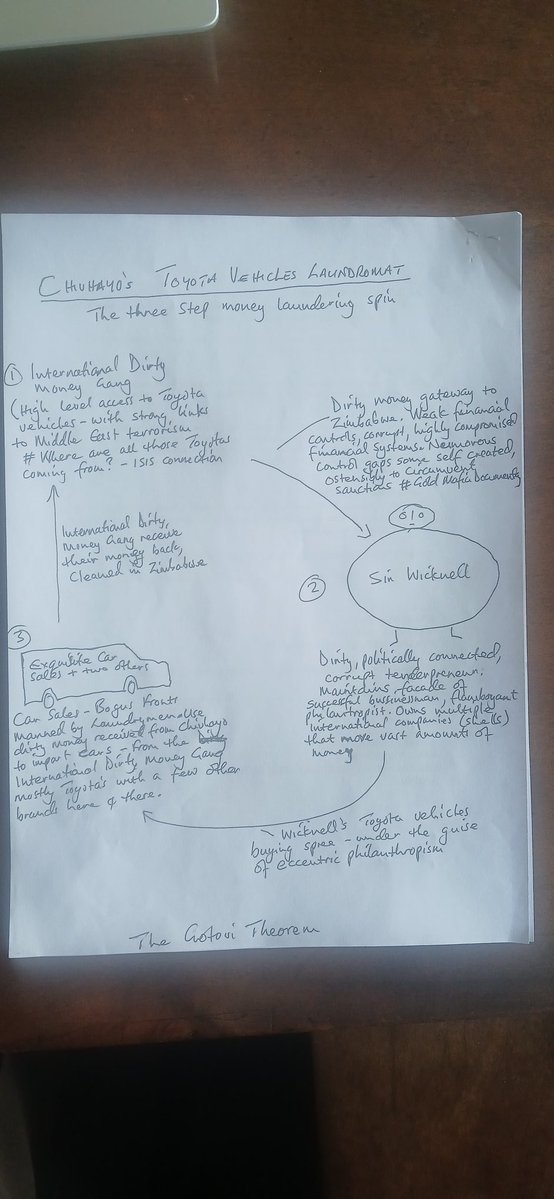 CHIVHAYO'S TOYOTA VEHICLES LAUNDROMAT
The three step money laundering spin
① International Dirty
Money Gang
(High level access to Toyota
vehicles - with strong links
to Middle East terrorism
# Where are all those Toyotas
coming from? - ISIS connection
Dirty money gateway to
Zimbabwe. Weak financial
controls, corrupt, highly compromised
financial systems. Neumorous
control gaps some self created,
ostensibly to circumvent
sanctions # Gold Mafia Documenty
International Dirty,
Money Gang receive
their money back,
Cleaned in Zimbabwe
②
Sir Wicknell
Dirty, politically connected,
corrupt tenderpreneur,
maintains facade of
succesful businessman, flamboyant
philantropist. Owns multiple
international companies (shells)
that move vast amounts of
money
③
Exquisite Car
Sales + two others
Car Sales - Bogus fronts
manned by Laundrymen - use
dirty money received from Chivhayo
to import cars - from the
International Dirty Money Gang
mostly Toyota's with a few other
brands here & there.
Wicknell's Toyota vehicles
buying spree - under the guise
of eccentric philanthropism
The Gotovi Theorem